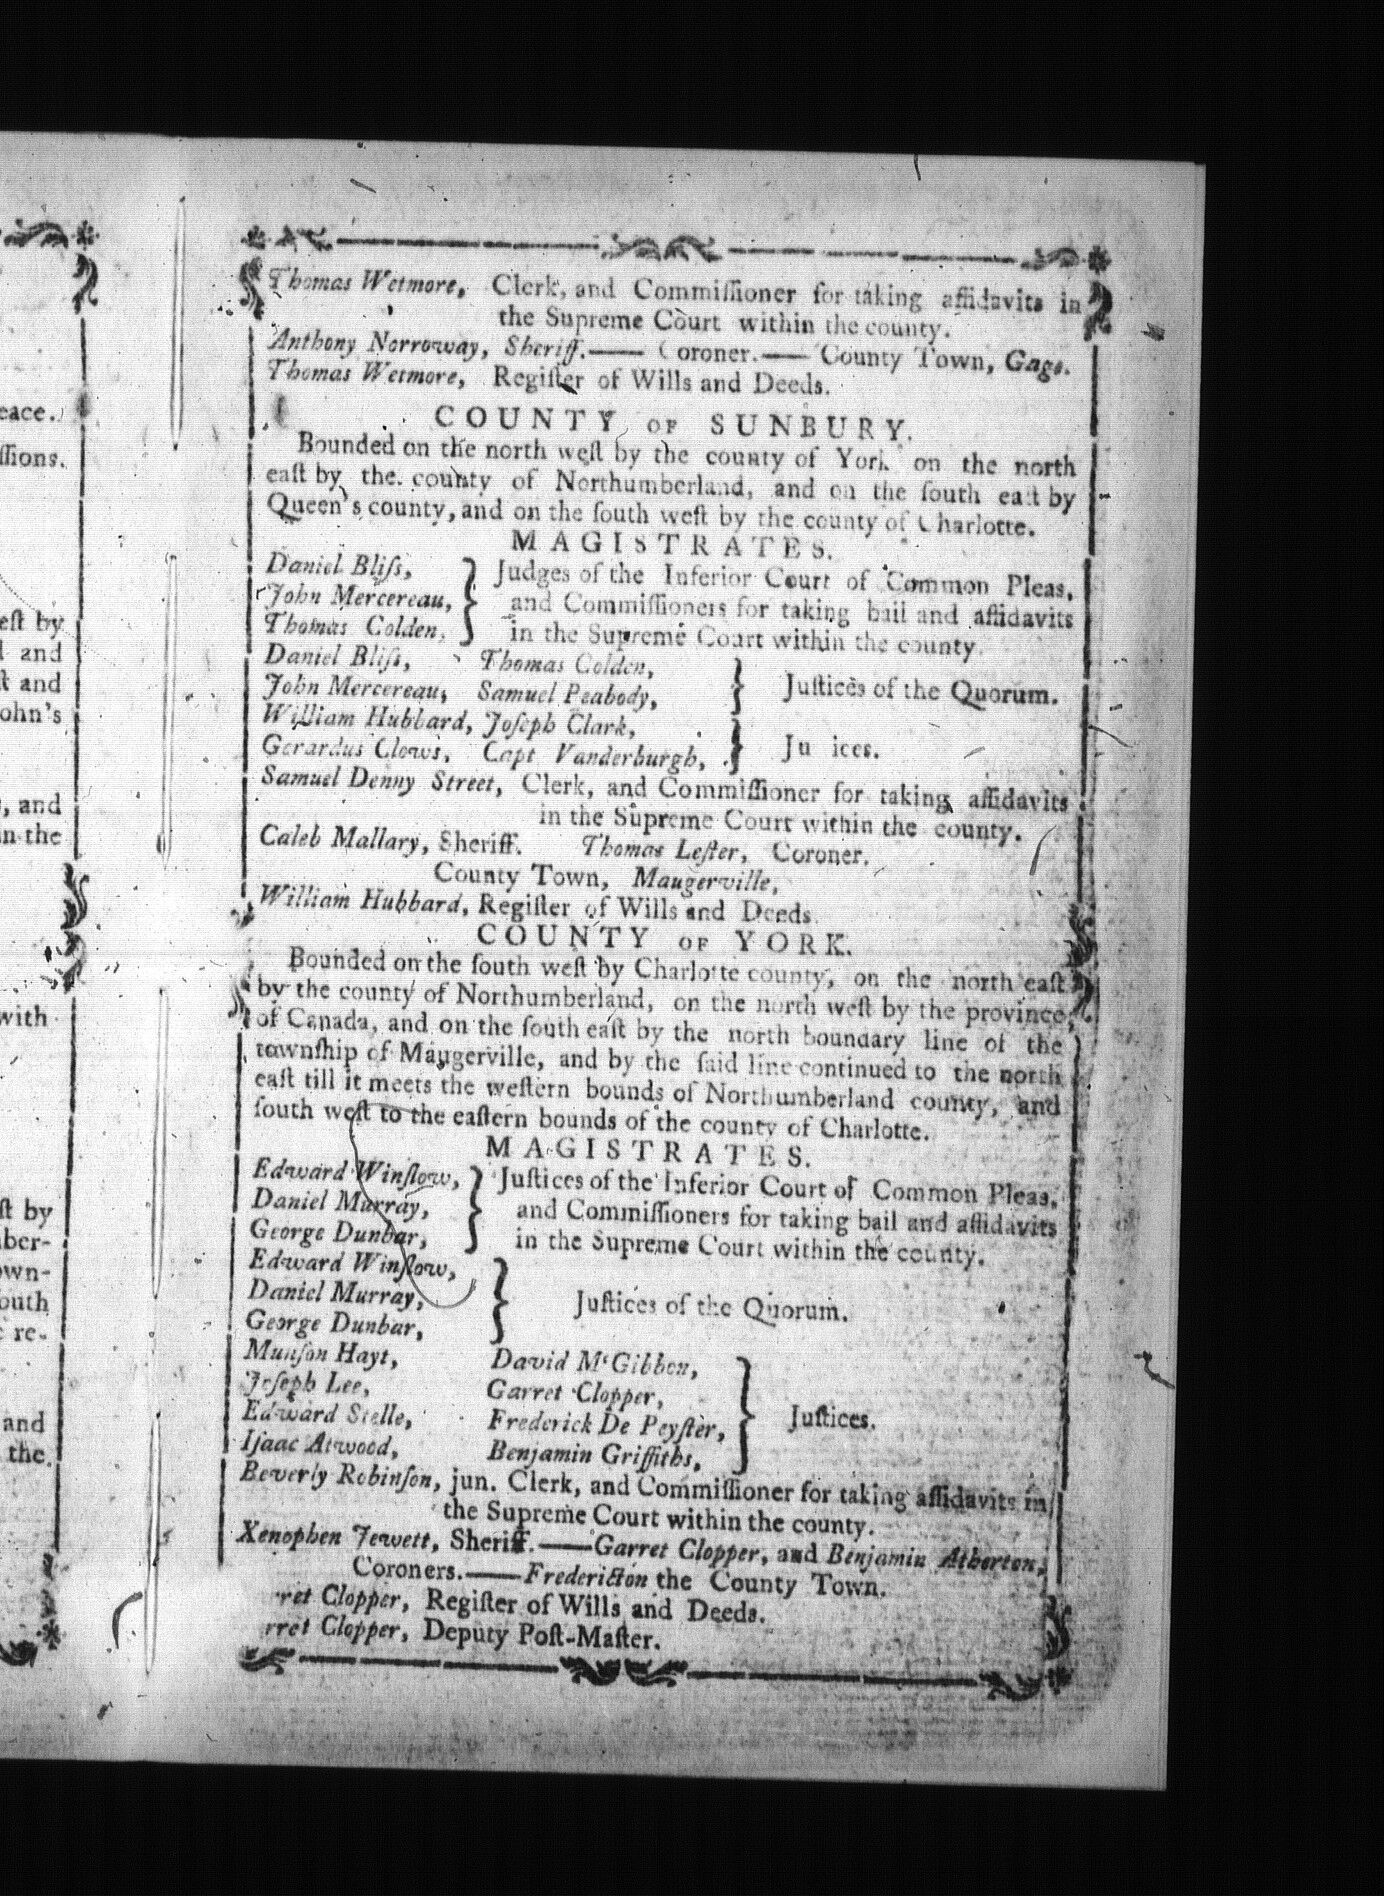 eace.
ſſions.
eſt by
and
ſt and
ohn's
, and
in the
with
ſt by
ber-
own-
outh
re-
and
the
Thomas Wetmore, Clerk, and Commiſſioner for taking affidavits in
the Supreme Court within the county.
Anthony Norroway, Sheriff.—— Coroner.—— County Town, Gage.
Thomas Wetmore, Regiſter of Wills and Deeds.
COUNTY OF SUNBURY.
Bounded on the north weſt by the county of York on the north
eaſt by the county of Northumberland, and on the ſouth eaſt by
Queen's county, and on the ſouth weſt by the county of Charlotte.
MAGISTRATES.
Daniel Bliſs, } Judges of the Inferior Court of Common Pleas,
John Mercereau, } and Commiſſioners for taking bail and affidavits
Thomas Colden, } in the Supreme Court within the county.
Daniel Bliſs, Thomas Colden,
John Mercereau, Samuel Peabody, } Juſtices of the Quorum.
William Hubbard, Joſeph Clark,
Gerardus Clows, Capt Vanderburgh, } Ju ices.
Samuel Denny Street, Clerk, and Commiſſioner for taking affidavits
in the Supreme Court within the county.
Caleb Mallary, Sheriff. Thomas Leſter, Coroner.
County Town, Maugerville,
William Hubbard, Regiſter of Wills and Deeds.
COUNTY OF YORK.
Bounded on the ſouth weſt by Charlotte county, on the north eaſt
by the county of Northumberland, on the north weſt by the province
of Canada, and on the ſouth eaſt by the north boundary line of the
townſhip of Maugerville, and by the ſaid line continued to the north
eaſt till it meets the weſtern bounds of Northumberland county, and
ſouth weſt to the eaſtern bounds of the county of Charlotte.
MAGISTRATES.
Edward Winſlow, } Juſtices of the Inferior Court of Common Pleas,
Daniel Murray, } and Commiſſioners for taking bail and affidavits
George Dunbar, } in the Supreme Court within the county.
Edward Winſlow,
Daniel Murray, } Juſtices of the Quorum.
George Dunbar,
Munſon Hayt, David M'Gibbon,
Joſeph Lee, Garret Clopper,
Edward Stelle, Frederick De Peyſter, } Juſtices.
Iſaac Atwood, Benjamin Griffiths,
Beverly Robinſon, jun. Clerk, and Commiſſioner for taking affidavits in
the Supreme Court within the county.
Xenophen Jewett, Sheriff.——Garret Clopper, and Benjamin Atherton,
Coroners.——Fredericton the County Town.
rret Clopper, Regiſter of Wills and Deeds.
rret Clopper, Deputy Poſt-Maſter.